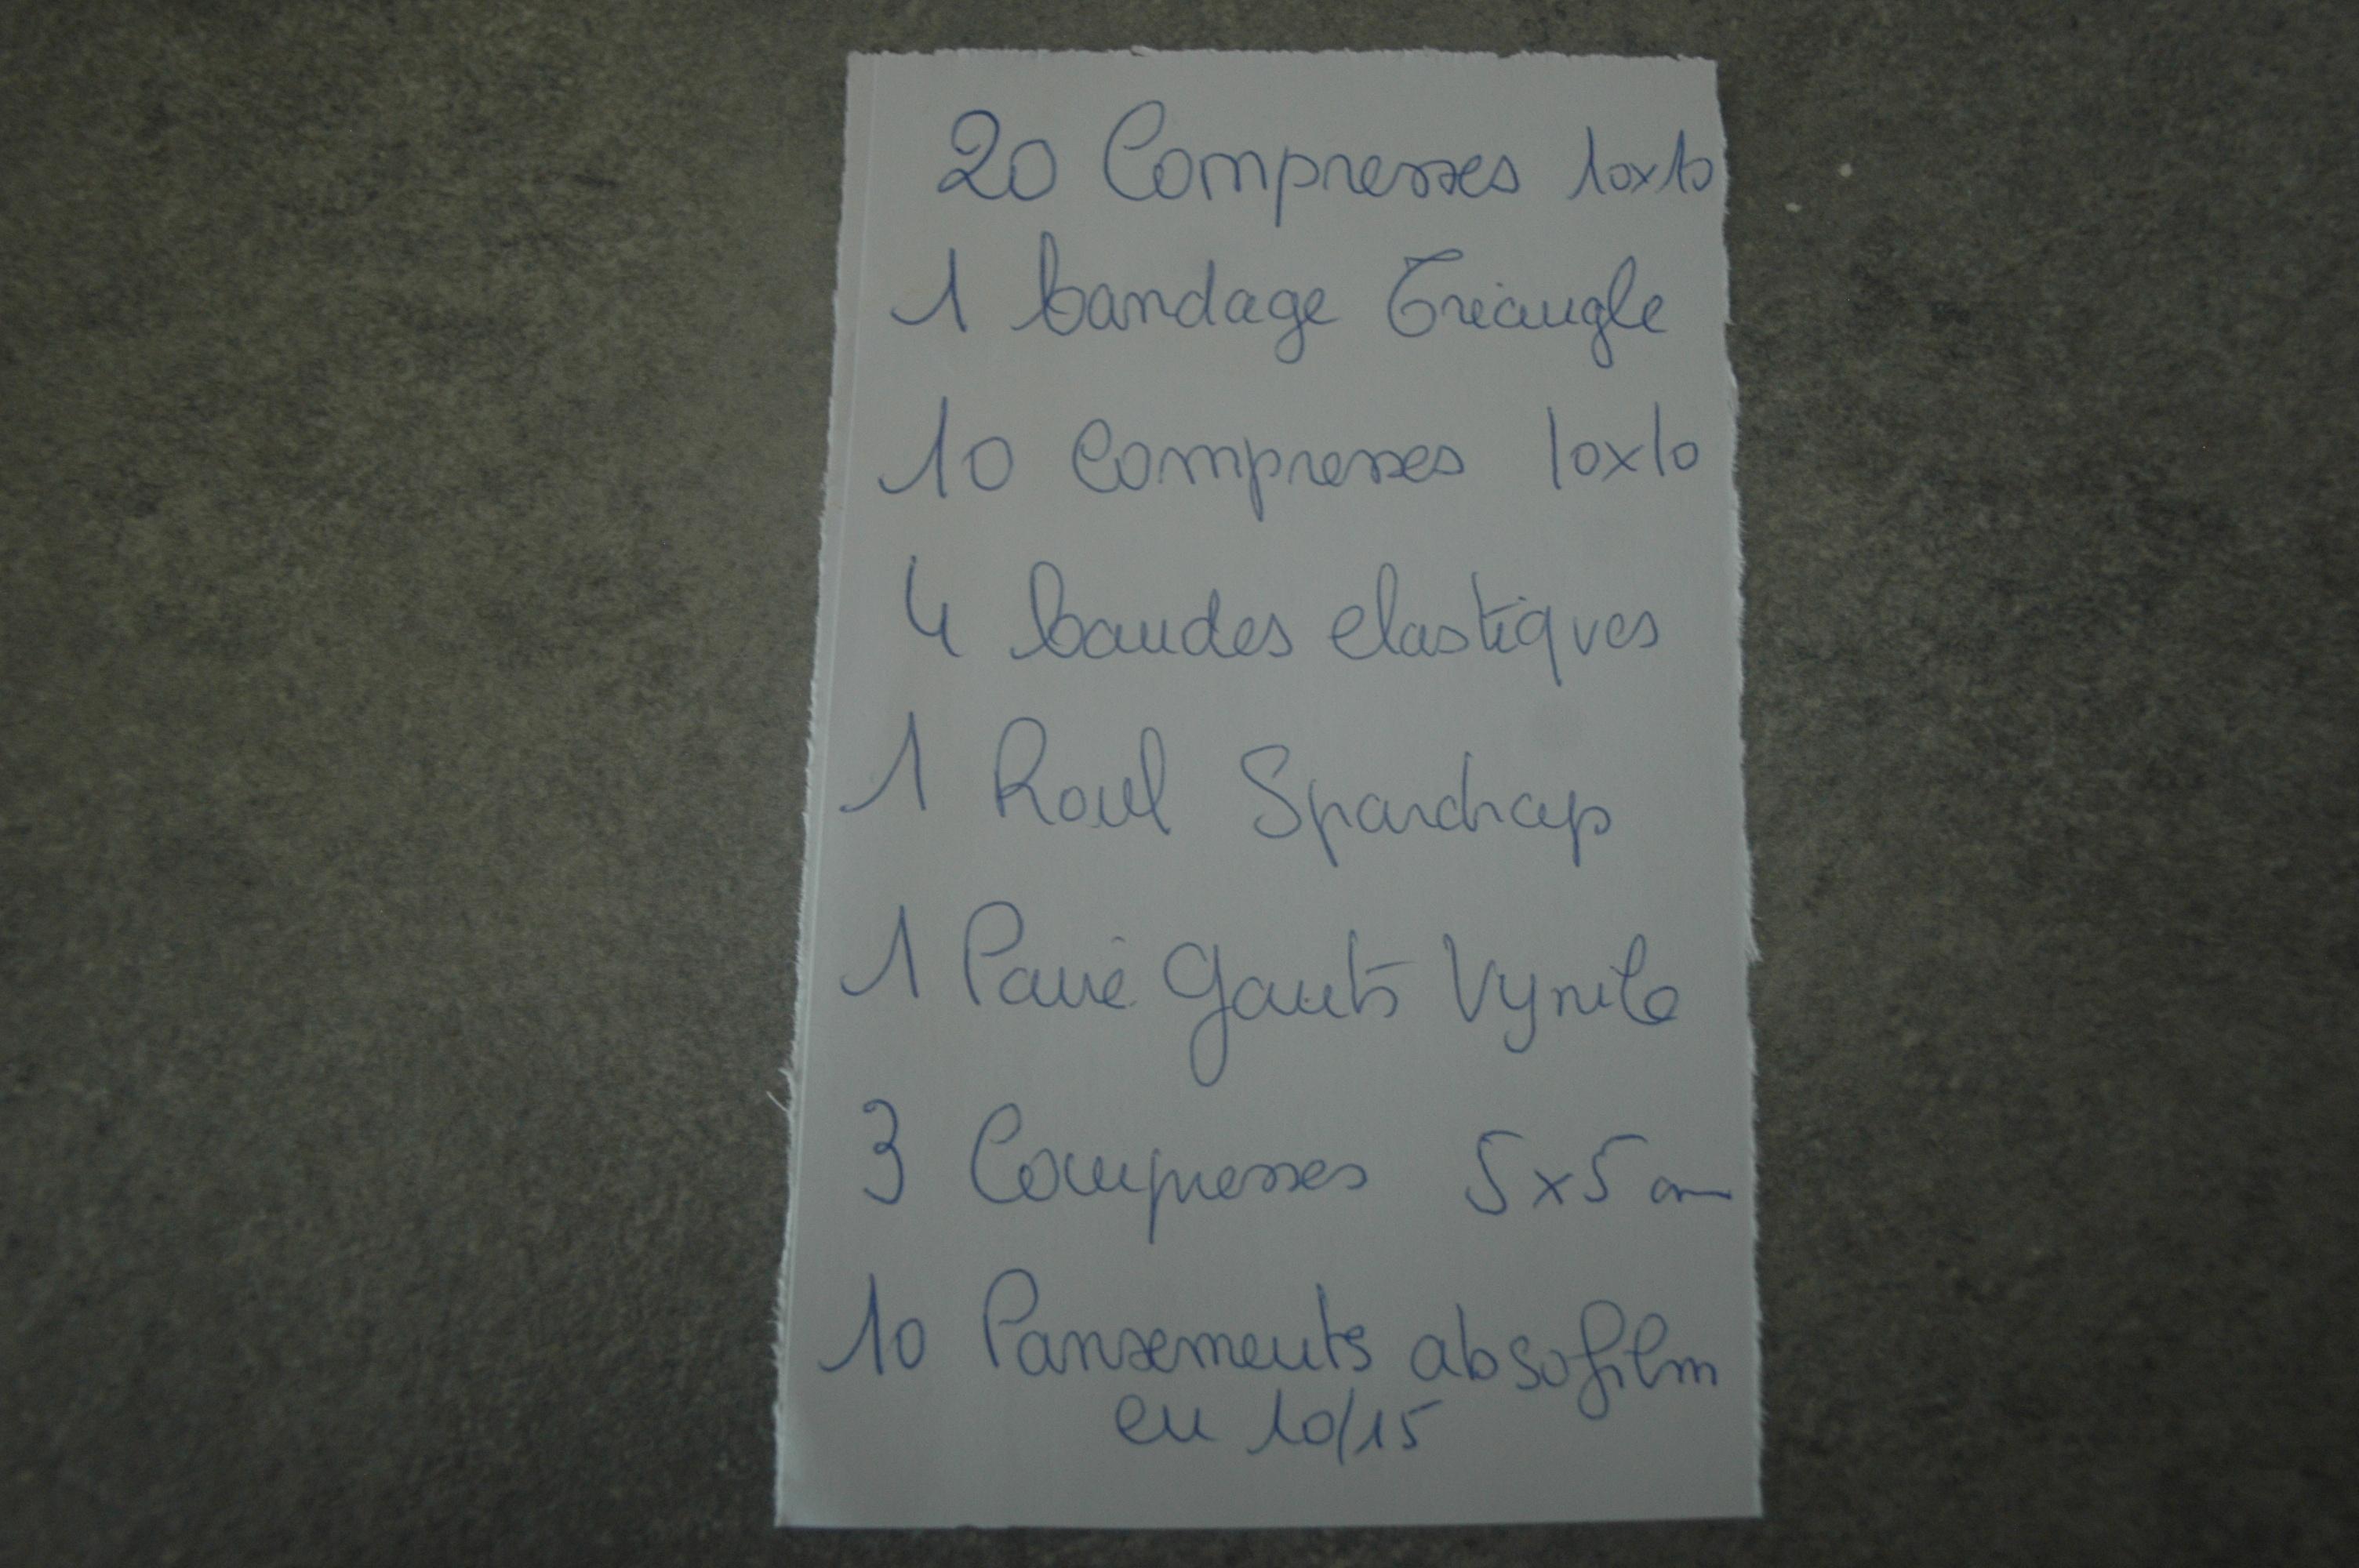 20 Compresses 10x10
1 bandage Triangle
10 Compresses 10x10
4 bandes elastiques
1 Roul Spardrap
1 Paire Gants Vynile
3 Compresses 5x5 cm
10 Pansements absofilm
en 10/15